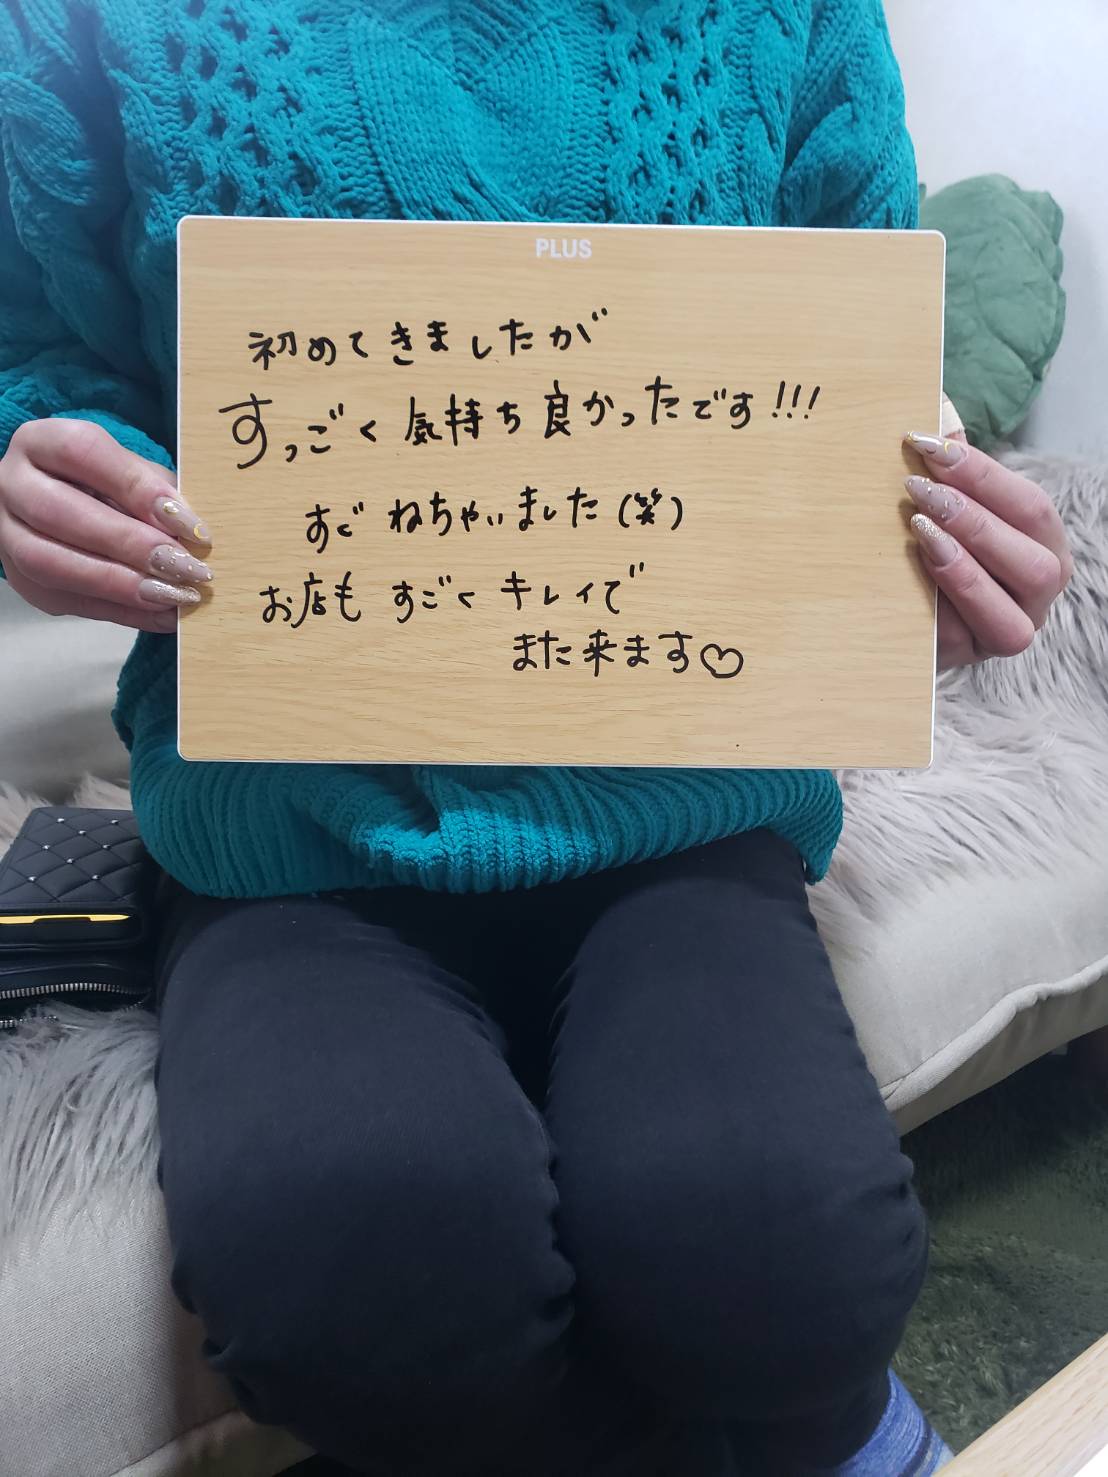 PLUS
初めてきましたが
すっごく気持ち良かったです!!!
すぐねちゃいました(笑)
お店もすごくキレイで
また来ます♡